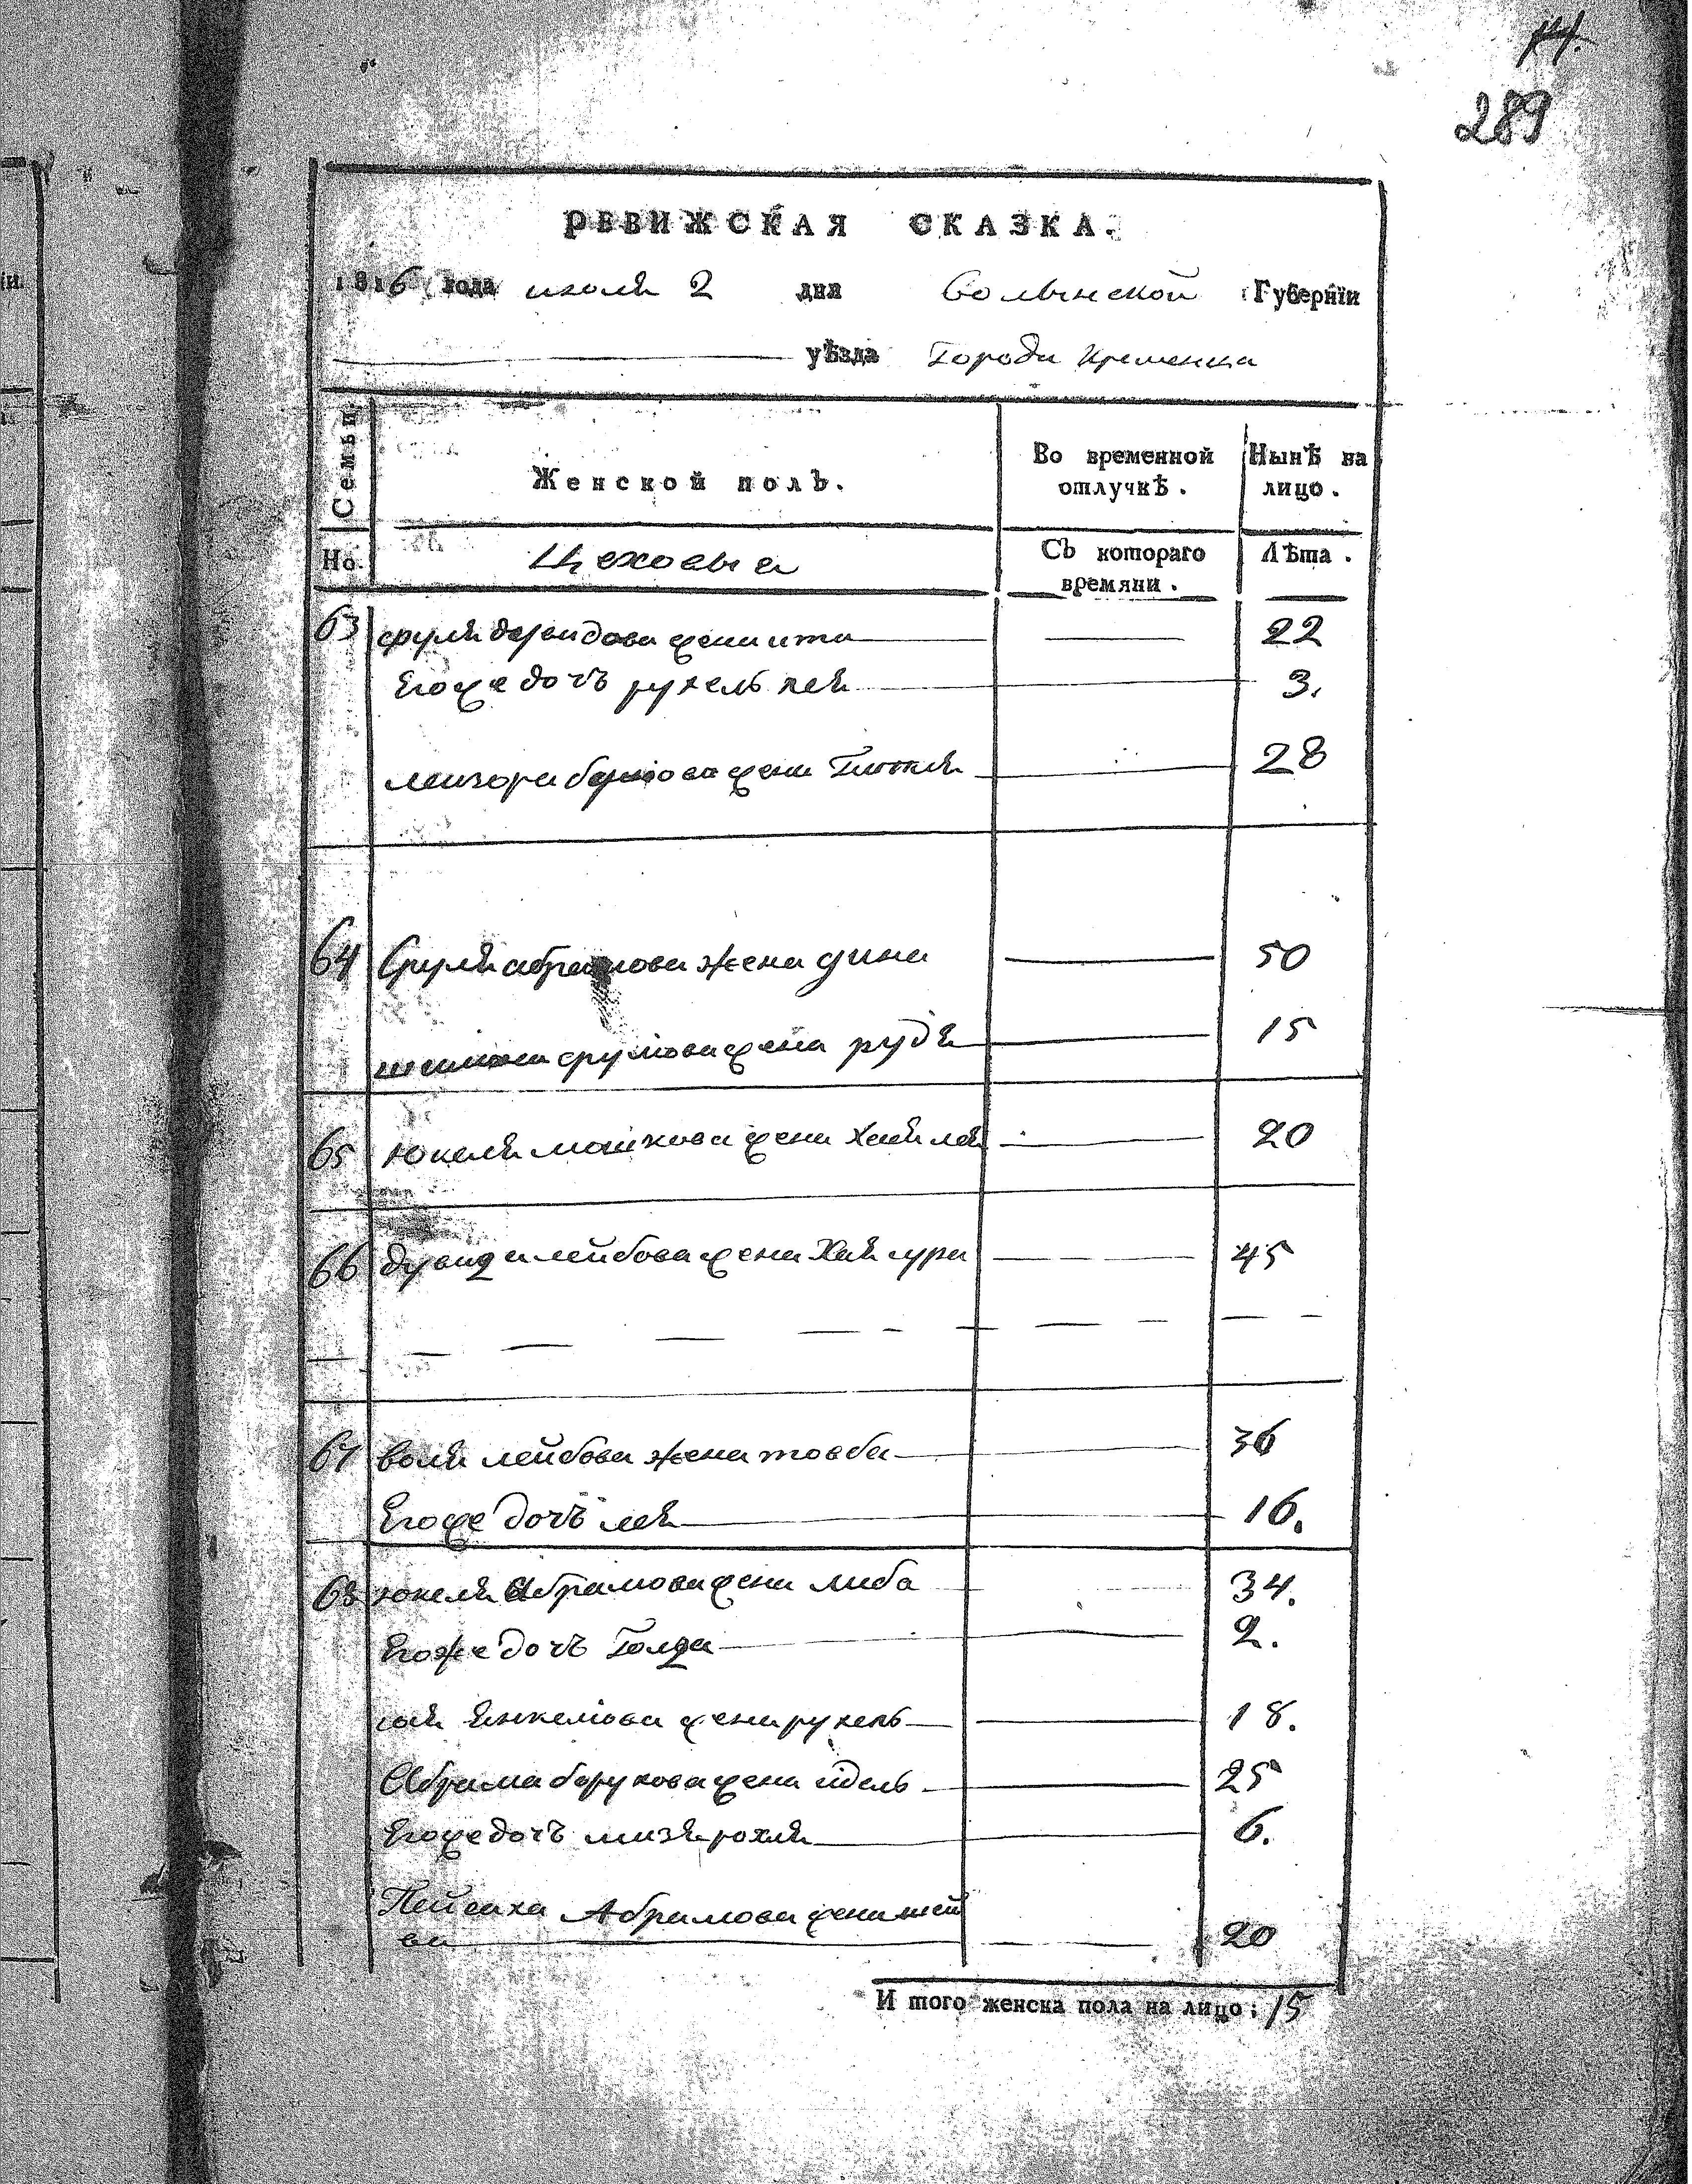 289
РЕВИЖСКАЯ СКАЗКА.
1816 года июля 2 дня Волынской Губернїи
уѣзда Города Кременца
Семьи.
Женской полъ.
Во временной отлучкѣ.
Нынѣ на лицо.
Но.
Цеховые
Съ котораго времяни.
Лѣта.
63 сруля давидова жена ита 22
Егоже дочь рухель лея 3.
лейзора жена 28
64 Сруля абрамова жена дина 50
срулюва жена рудя 15
65 юкеля мошкова жена Хая лея 20
66 давида лейбова жена Хая сура 45
67 воля лейбова жена товба 36
Егоже дочь лея 16.
68 юкеля Абрамова жена либа 34.
Егоже дочь Голда 2.
янкелюва жена рухель 18.
Абрама борухова жена 25
Егоже дочь рохля 6.
Пейсаха Абрамова жена шей
ва 20
И того женска пола на лицо: 15